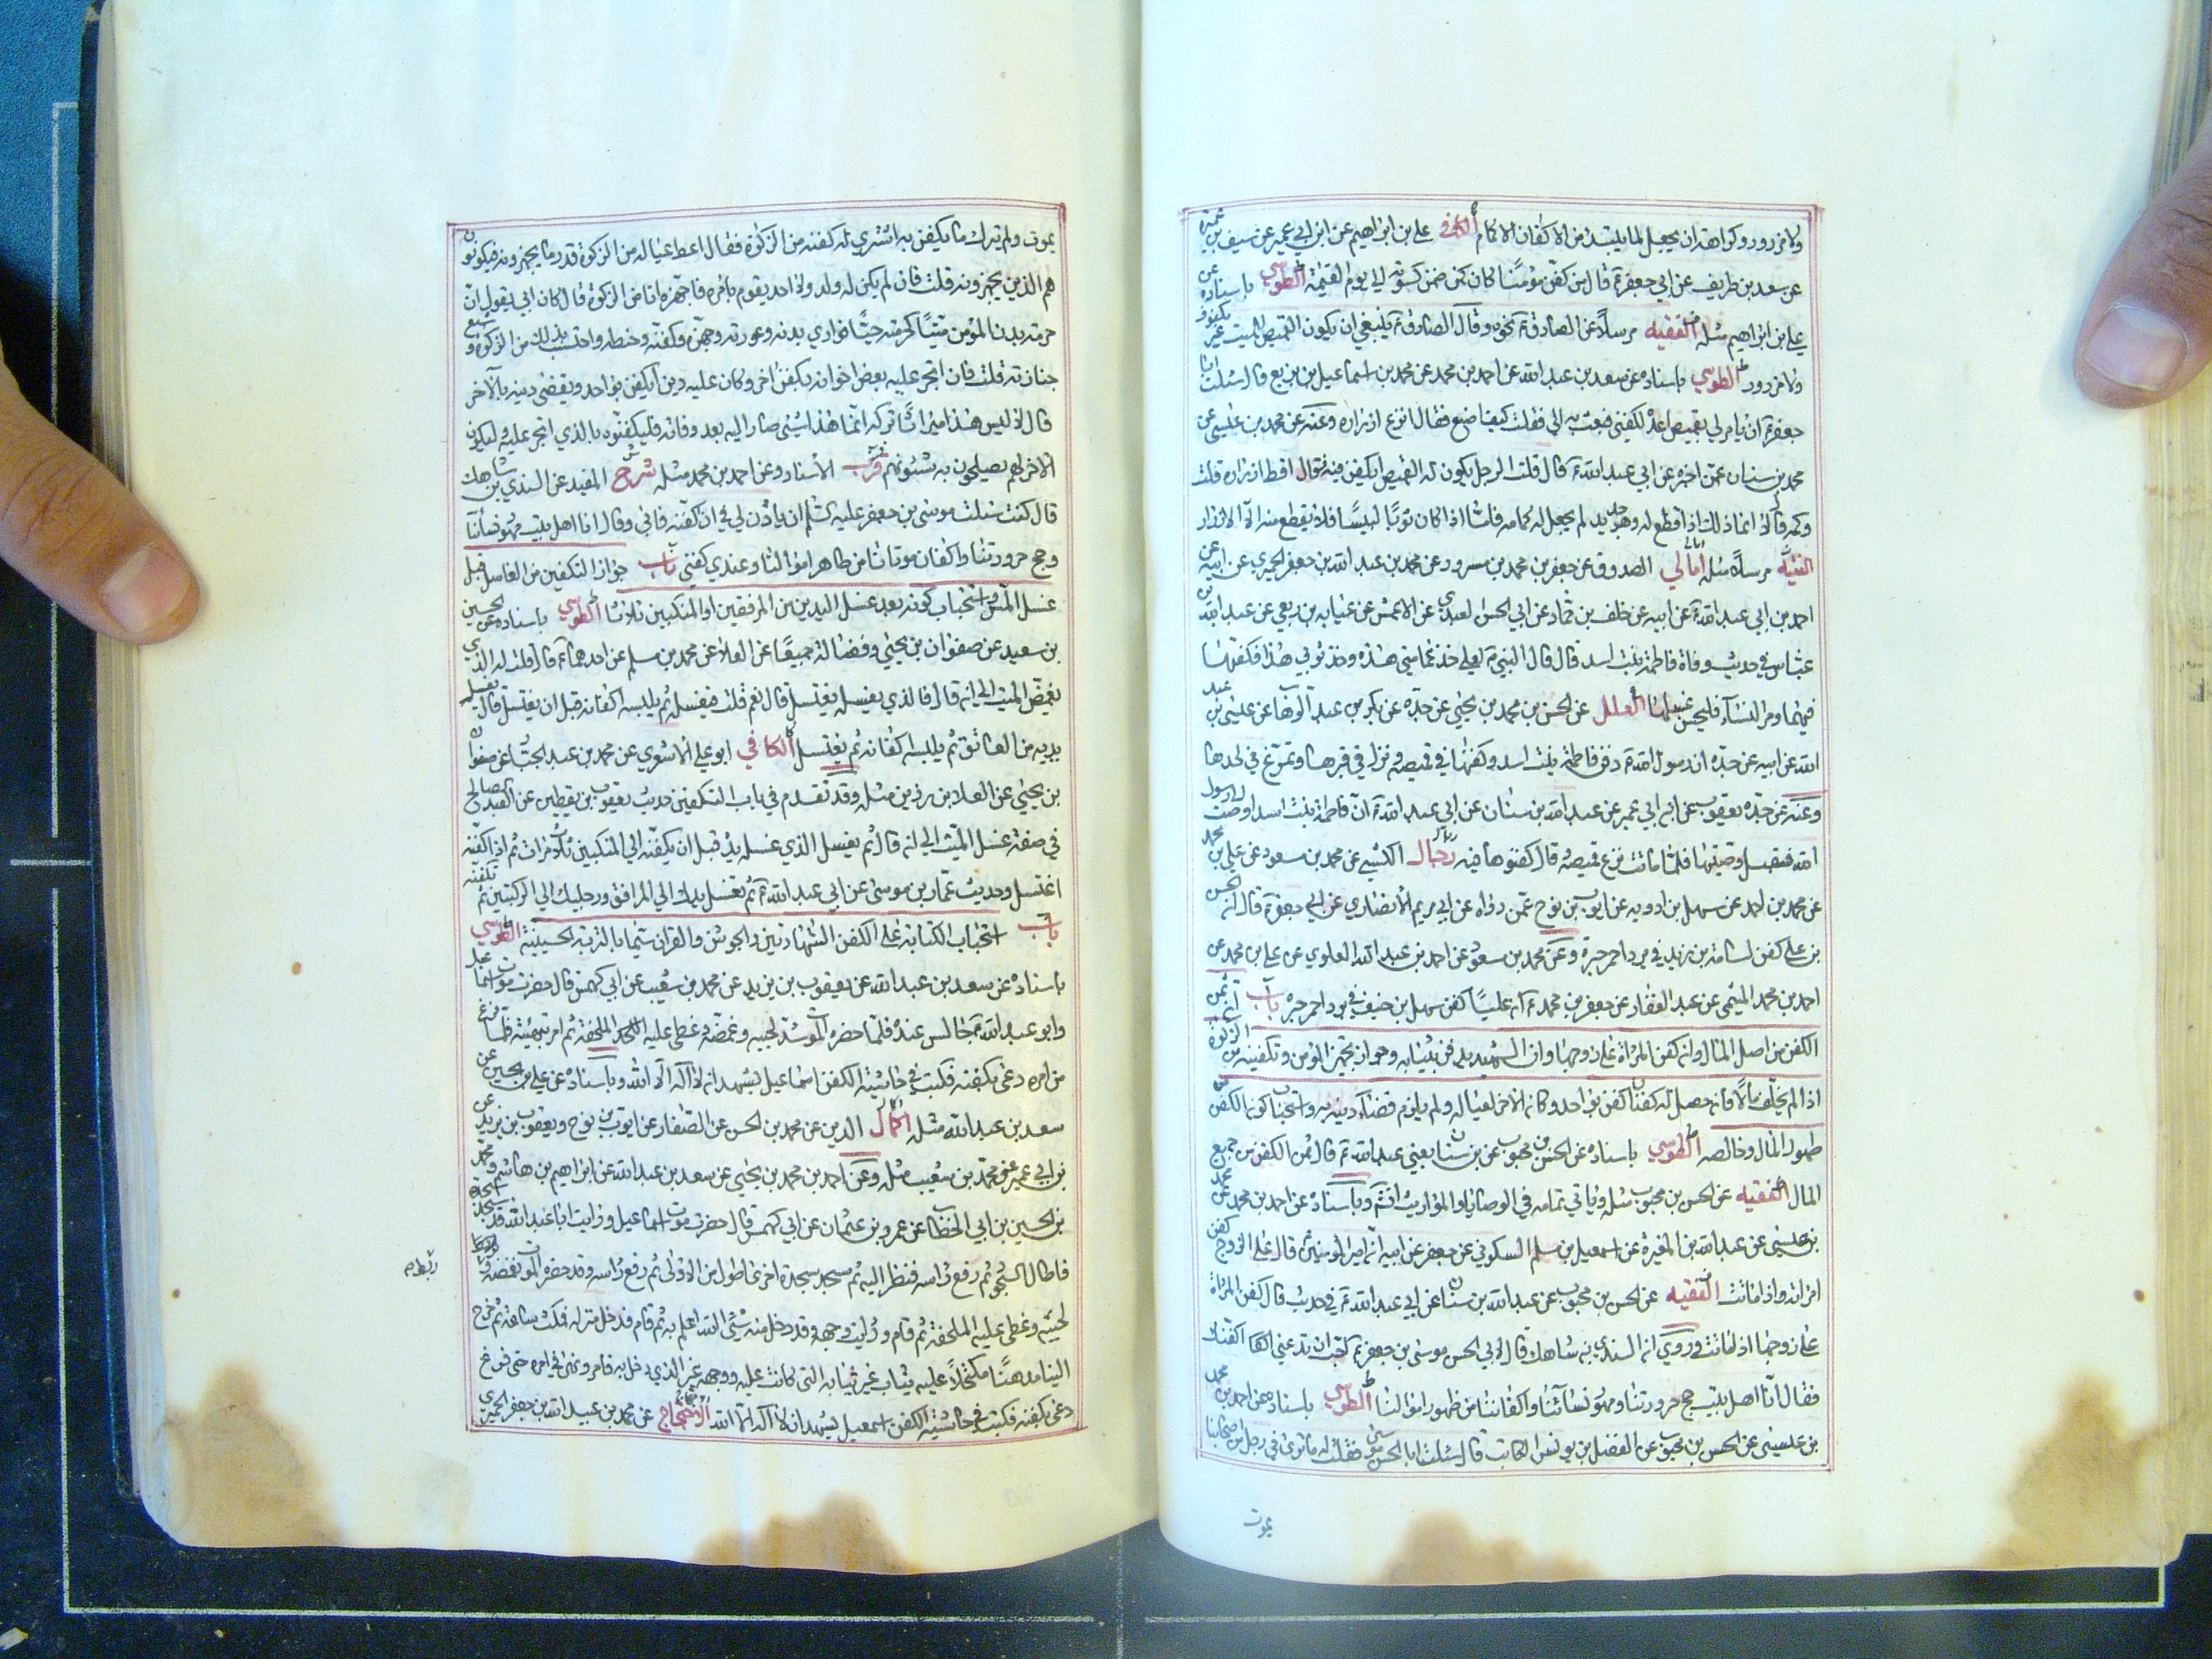 ولا مزرور وكراهة ان يجعل لما يبتدئ من الاكفان الاكمام الكافي علي بن ابراهيم عن ابن ابي عمير عن سيف بن عميرة
عن سعد بن طريف عن ابي جعفر ع قال من كفن مؤمنا كان كمن ضمن كسوته الى يوم القيمة الطوسي باسناده عن
علي بن ابراهيم مثله الفقيه مرسلا عن الصادق ع نحوه وقال الصادق ع ينبغي ان يكون القميص للميت غير مكفوف
ولا مزرور الطوسي باسناده عن سعد بن عبد الله عن احمد بن محمد عن محمد بن اسماعيل بن بزيع قال سئلت ابا
جعفر ع ان يامر لي بقميص اعده لكفني فبعث به الي فقلت كيف اصنع فقال انزع ازراره وعنه عن محمد بن عيسى عن
محمد بن سنان عمن اخبره عن ابي عبد الله ع قال قلت الرجل يكون له القميص ايكفن فيه فقال اقطع ازراره قلت
وكمه قال لا انما ذلك اذا قطع له وهو جديد لم يجعل له كما فاما اذا كان ثوبا لبيسا فلا يقطع منه الا الازرار
الفقيه مرسلا مثله امالي الصدوق عن جعفر بن محمد بن مسرور عن محمد بن عبد الله بن جعفر الحميري عن ابيه عن
احمد بن ابي عبد الله عن ابيه عن خلف بن حماد عن ابي الحسن العبدي عن الاعمش عن عباية بن ربعي عن عبد الله بن
عباس في حديث وفاة فاطمة بنت اسد قال قال النبي ص لعلي خذ عمامتي هذه وخذ ثوبي هذا فكفنها
فيهما ومر النساء فليحسن غسلها العلل عن الحسن بن محمد بن يحيى عن جده عن بكر بن عبد الوهاب عن عيسى بن عبد
الله عن ابيه عن جده ان رسول الله ص دفن فاطمة بنت اسد وكفنها في قميصه ونزل في قبرها وتمرغ في لحدها
وعنه عن جده يعقوب عن ابن ابي عمير عن عبد الله بن سنان عن ابي عبد الله ع ان فاطمة بنت اسد اوصت الى رسول
الله فقبل وصيتها فلما ماتت نزع قميصه وقال كفنوها فيه رجال الكشي عن محمد بن مسعود عن علي بن محمد
عن محمد بن احمد عن سهل بن زادويه عن ايوب بن نوح عمن رواه عن ابي مريم الانصاري عن ابي جعفر ع قال ان الحسن
بن علي كفن اسامة بن زيد في برد احمر حبرة وعن محمد بن مسعود عن احمد بن عبد الله العلوي عن علي بن محمد عن
احمد بن محمد الليثي عن عبد الغفار عن جعفر بن محمد ع ان عليا كفن سهل بن حنيف في برد احمر حبره باب ان ثمن
الكفن من اصل المال وانه كفن المراة على زوجها وان الشهيد يدفن بثيابه وجواز تجهيز المؤمن وتكفينه من الزكوة
اذا لم يخلف مالا فان حصل له كفنان كفن بواحد وكان الاخر لعياله ولم يلزم قضاء دينه به واستحباب كون الكفن من
طهور المال وخالصه الطوسي باسناده عن الحسن بن محبوب عن بن سنان يعني عبد الله ع قال ثمن الكفن من جميع
المال الفقيه عن الحسن بن محبوب مثله وياتي تمامه في الوصايا والمواريث انشم وباسناده عن احمد بن محمد عن محمد
بن عيسى عن عبد الله بن المغيرة عن اسمعيل بن مسلم السكوني عن جعفر عن ابيه ان امير المومنين ع قال على الزوج كفن
امراته واذا ماتت الفقيه عن الحسن بن محبوب عن عبد الله بن سنان عن ابي عبد الله ع في حديث قال كفن المراة
على زوجها اذا ماتت وروي ان السندي بن شاهك قال لابي الحسن موسى بن جعفر ع احب ان تدعني اكفنك
فقال انا اهل بيت حج صرورتنا ومهور نسائنا واكفاننا من طهور اموالنا الطوسي باسناده عن احمد بن محمد
بن عيسى عن الحسن بن محبوب عن الفضل بن يونس الكاتب قال سئلت ابا الحسن موسى فقلت له ما ترى في رجل من اصحابنا
يموت
يموت ولم يترك ما يكفن به اشتري له كفنه من الزكوة فقال اعط عياله من الزكوة قدر ما يجهزونه فيكونون
هم الذين يجهزونه قلت فان لم يكن له ولد ولا احد يقوم بامره فاجهزه انا من الزكوة قال كان ابي يقول ان
حرمة بدن المؤمن ميتا كحرمته حيا فواري بدنه وعورته وجهزه وكفنه وحنطه واحتسب بذلك من الزكوة وشيع
جنازته قلت فان اتجر عليه بعض اخوانه بكفن اخر وكان عليه دين ايكفن بواحد ويقضى دينه بالآخر
قال لا ليس هذا ميراثا تركه انما هذا شئ صار اليه بعد وفاته فليكفنوه بالذي اتجر عليه وليكن
الاخر لهم يصلحون به شئونهم قرب الاسناد وعن احمد بن محمد مثله شرح المفيد عن السندي بن شاهك
قال كنت سئلت موسى بن جعفر عليه السلم ان ياذن لي في ان اكفنه فابى وقال انا اهل بيت مهور نسائنا
وحج صرورتنا واكفان موتانا من طاهر اموالنا وعندي كفني باب جواز التكفين من الغاسل قبل
غسل المس واستحباب كونه بعد غسل اليدين من المرفقين او المنكبين ثلاثا الطوسي باسناده عن الحسين
بن سعيد عن صفوان بن يحيى وفضالة جميعا عن العلا عن محمد بن مسلم عن احدهما ع قال قلت له الذي
يغمض الميت الى ان قال فالذي يغسله يغتسل قال نعم قلت فيغسله ثم يلبسه اكفانه قبل ان يغتسل قال يغسل
يديه من العاتق ثم يلبسه اكفانه ثم يغتسل الكافي ابو علي الاشعري عن محمد بن عبد الجبار عن صفوان
بن يحيى عن العلا بن رزين مثله وقد تقدم في باب التكفين حديث يعقوب بن يقطين عن العبد الصالح
في صفة غسل الميت الى ان قال ثم يغسل الذي غسله يده قبل ان يكفنه الى المنكبين ثلاث مرات ثم اذا كفنه
اغتسل وحديث عمار بن موسى عن ابي عبد الله ع ثم تغسل يديك الى المرافق ورجليك الى الركبتين ثم تكفنه
باب استحباب الكتابة على الكفن الشهادتين والجوشن والقران سيما بالتربة الحسينية الطوسي
باسناده عن سعد بن عبد الله عن يعقوب بن يزيد عن محمد بن شعيب عن ابي كهمس قال حضرت موت اسماعيل
وابو عبد الله ع جالس عنده فلما حضره الموت شد لحييه وغمضه وغطى عليه الملحفة ثم امر بتهيئته فلما فرغ
من امره دعى بكفنه فكتب في حاشية الكفن اسماعيل يشهد ان لا اله الا الله وباسناده عن علي بن الحسين عن
سعد بن عبد الله مثله اكمال الدين عن محمد بن الحسن عن الصفار عن ايوب بن نوح ويعقوب بن يزيد عن
بن ابي عمير عن محمد بن شعيب مثله وعن احمد بن محمد بن يحيى عن سعد بن عبد الله عن ابراهيم بن هاشم ومحمد
بن الحسين بن ابي الخطاب عن عمرو بن عثمان عن ابي كهمس قال حضرت موت اسماعيل ورايت ابا عبد الله قد سجد سجدة
فاطال السجود ثم رفع راسه فنظر اليه ثم سجد سجدة اخرى اطول من الاولى ثم رفع راسه وقد حضره الموت فغمضه وربط
لحييه وغطى عليه الملحفة ثم قام ورايت وجهه وقد دخل منه شئ الله اعلم به ثم قام فدخل منزله فمكث ساعة ثم خرج
الينا مدهنا مكتحلا عليه ثياب غير ثيابه التي كانت عليه ووجهه غير الذي دخل به فامر ونهى في امره حتى فرغ
دعى بكفنه فكتب في حاشية الكفن اسمعيل يشهد ان لا اله الا الله الاحتجاج عن محمد بن عبد الله بن جعفر الحميري